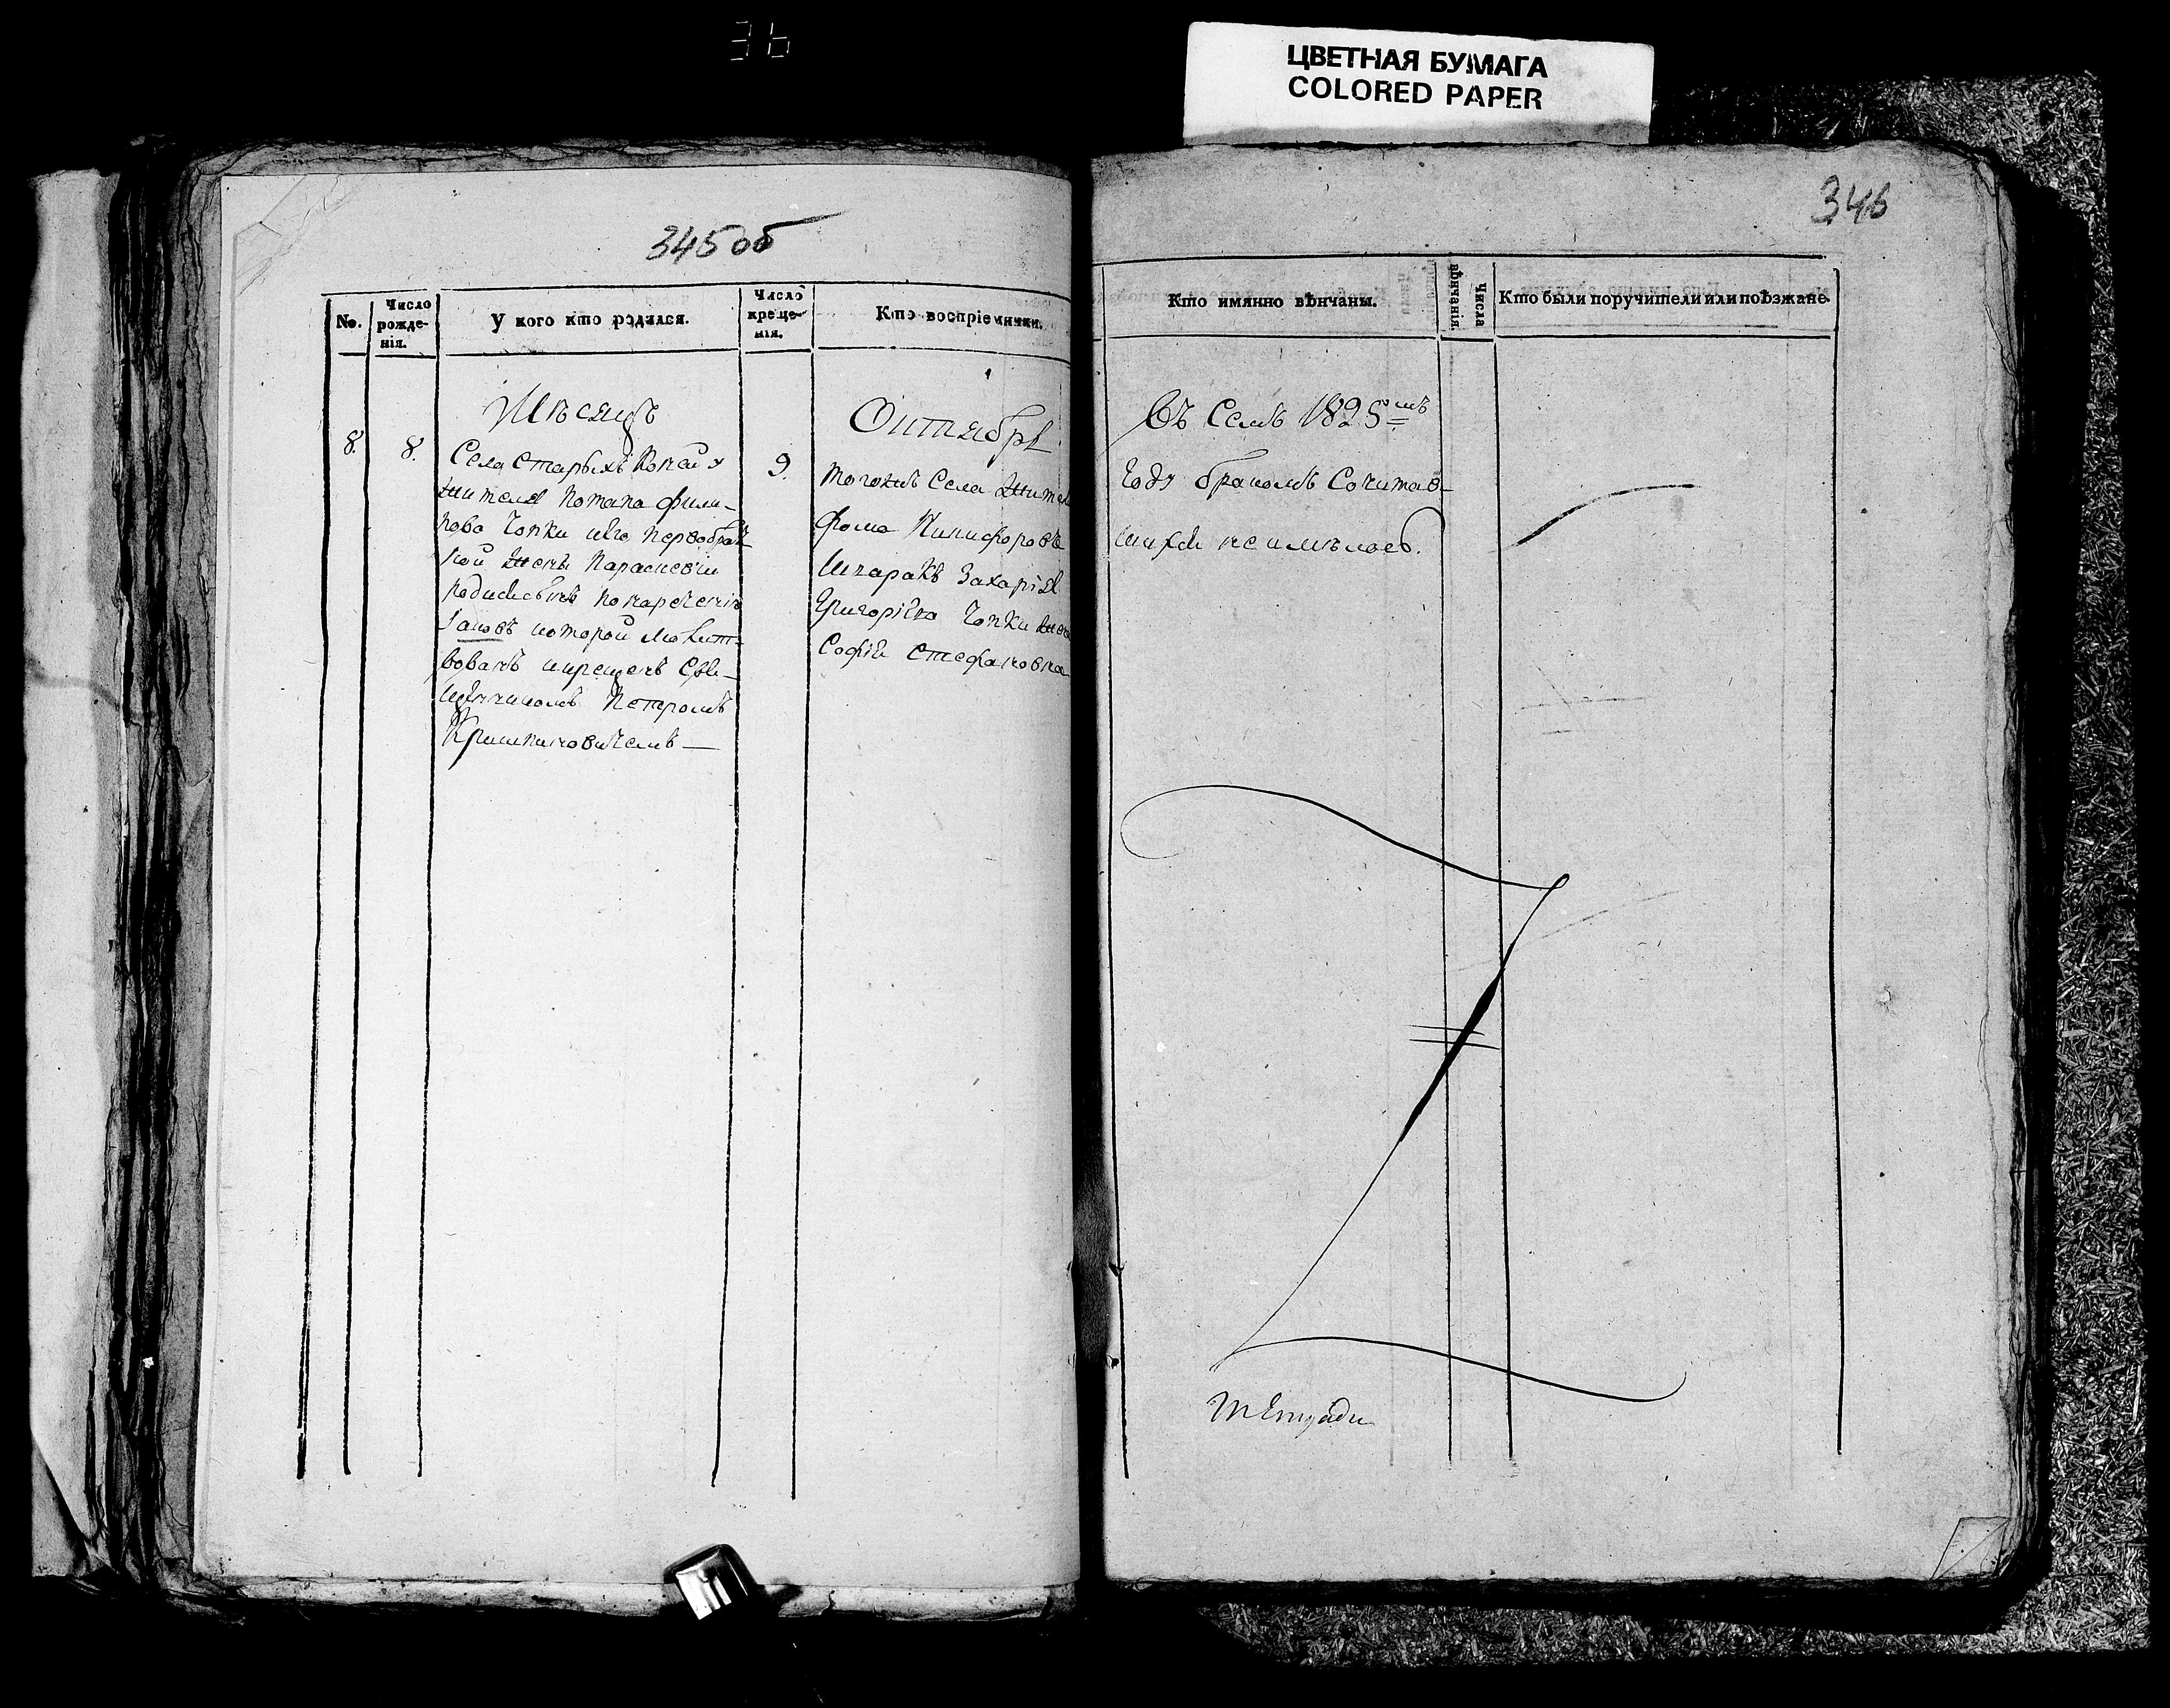 36
ЦВЕТНАЯ БУМАГА
COLORED PAPER
345 об
№.
Число рожде-нія.
У кого кто родился.
Число креще-нія.
Кто воспріемники.
Мѣсяцъ
Октябрь
8.
8.
Села Старыхъ
жителя Потапа Фили-
пова Чопки иего первобрач
ной жены Параскевіи
родился сынъ
Іаковъ которой молит-
вованъ икрещенъ Свя-
щенникомъ Петромъ
9.
тогожъ Села жител
Фома Никифоровъ
Захарія
Григоріева Чопки жен
Софія Стефановна
346
Кто имянно вѣнчаны.
Числа вѣнчанія.
Кто были поручители или поѣзжане.
Въ Семъ 1825мъ
Году бракомъ Сочитав-
шихся неимѣлось.
тетради